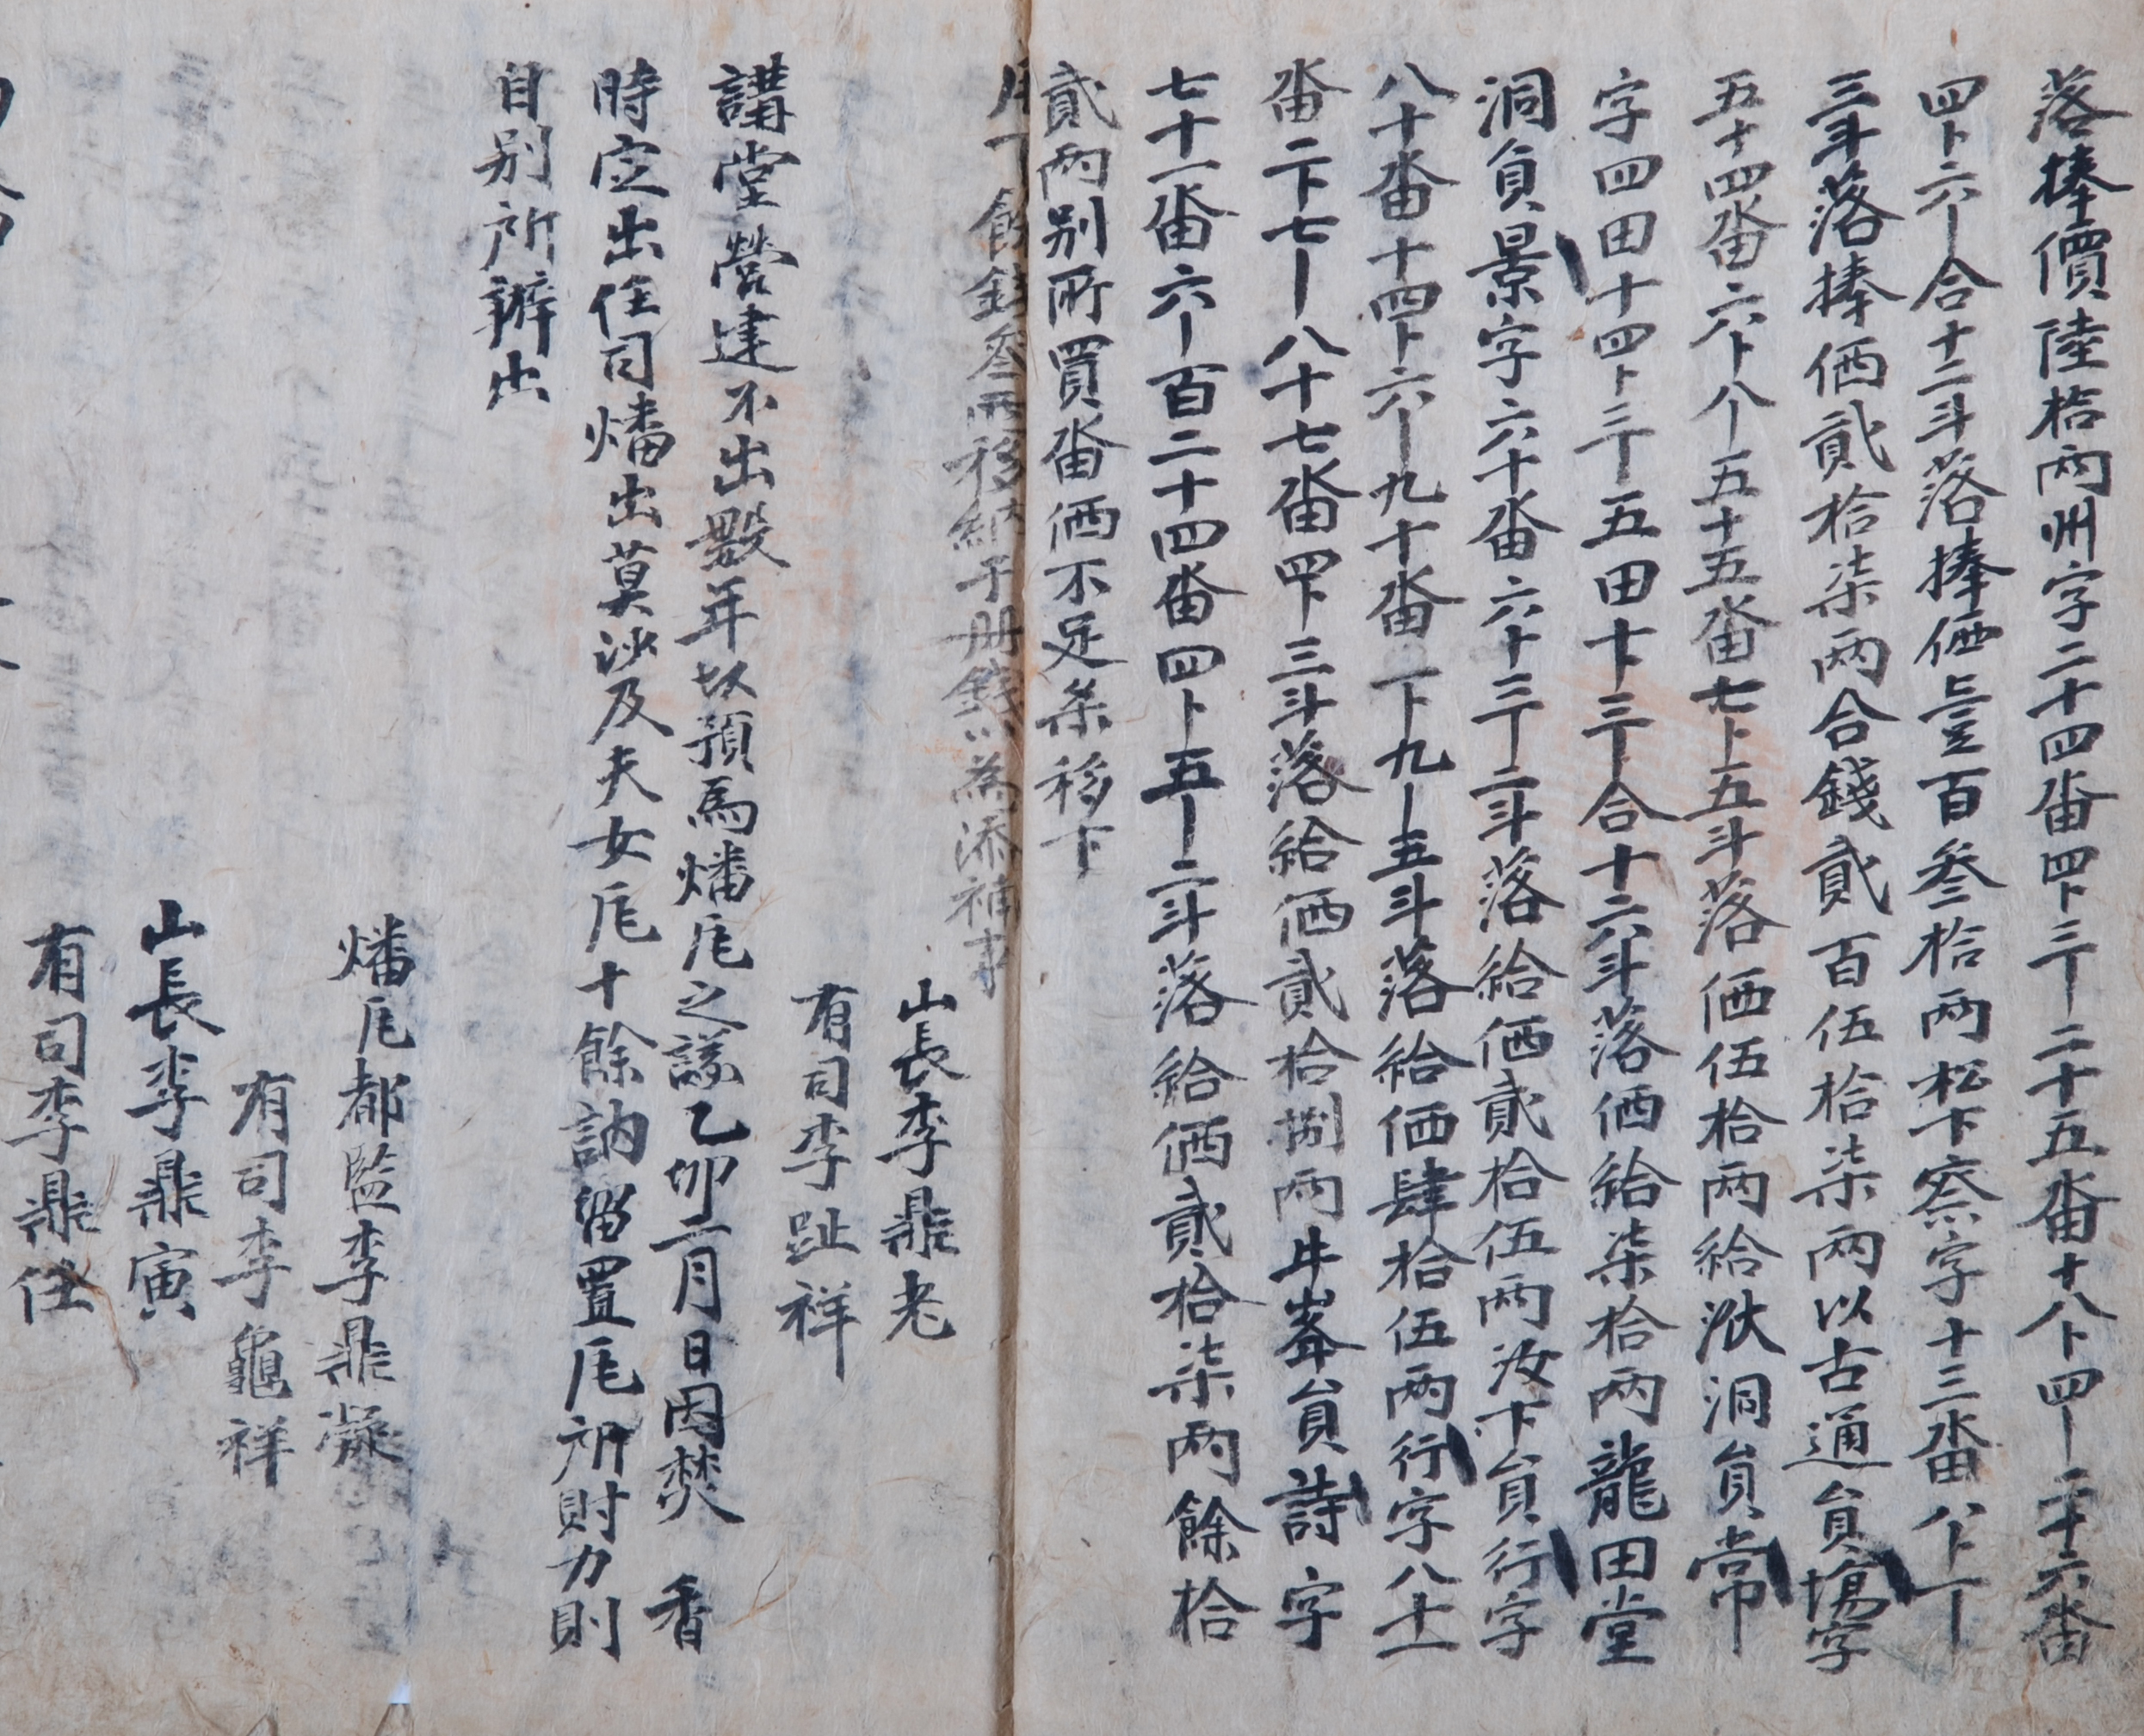 落捧價陸拾兩州字二十四畓四卜三丨二十五畓十八卜四丨二十六畓
四卜六丨合十二斗落捧価壹百叁拾兩松下察字十三畓八卜一丨
三斗落捧価貳拾柒兩合錢貳百伍拾柒兩以古通員場字
五十四畓六卜八丨五十五畓七卜五斗落価伍拾兩給洑洞員常
字四田十四卜三丨五田卜三丨合十六斗落価給柒拾兩龍田堂
洞員景字六十畓六十三丨二斗落給価貳拾伍兩汝下員行字
八十畓十四卜六丨九十畓一卜九丨五斗落給価肆拾伍兩行字八十一
畓二卜七丨八十七畓四卜三斗落給価貳拾捌兩牛峯員詩字
七十一畓六丨百二十四畓四卜五丨二斗落給価貳拾柒兩餘拾
貳兩別所買畓価不足条移下
用下餘錢叁兩移納于册錢以為添補事
山長李鼎老
有司李趾祥
講堂營建不出數年以預為燔瓦之議乙卯二月日因焚香
時定出任司燔出莫沙及夫女瓦瓦十餘訥留置瓦所財力則
自別所辦出
燔瓦都監李鼎凝
有司李龜祥
山長李鼎寅
有司李鼎任